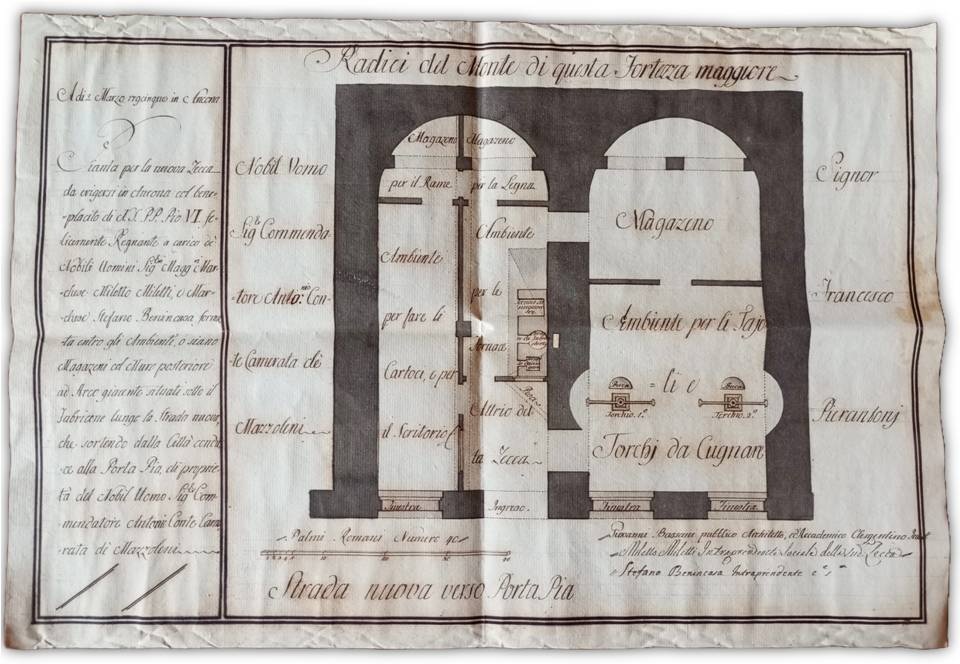 Radici del Monte di questa Fortezza maggiore
Adi 2. Marzo in Ancona
Pianta per la nuova Zecca
da erigersi in Ancona col bene-
placito di N. S. P. P. Pio VI. fe-
licemente Regnante a carico dè
Nobili Uomini Sigri Maggre Mar-
chese Miletto Miletti, e Mar-
chese Stefano Benincasa forma-
ta entro gli Ambienti, o siano
Magazeni col Muro posteriore
ad Arco giacente situati sotto il
Fabricone lungo la Strada nuova,
che sortendo dalla Città condu-
ce alla Porta Pia, di proprie-
tà del Nobil Uomo Sigre Com-
mendatore Antonio Conte Came-
rata dì Mazzoleni
Nobil Vomo
Sigre Commenda-
tore Antonio Con-
te Camerata dè
Mazzoleni
Magazeno
per il Rame
Magazeno
per la Legna
Ambiente
per fare li
Cartoci, e per
il Scritorio
Ambiente
per le
Fornace
Attrio del
la Zecca
Magazeno
Ambiente per li Tajo
=li e
Buca
Buca
Torchio 1º
Torchio 2º
Torchj da Cugnan
Finestra
Ingreso
Finestra
Finestra
Signor
Francesco
Pierantonj
Palmi Romani Numero 90
Strada nuova verso Porta Pia
Giovanni Bassini publico Architetto, ed Accademico Clementino
Miletto Miletti Intraprendente Sociale della Sud. Zecca
Stefano Benincasa Intraprendente